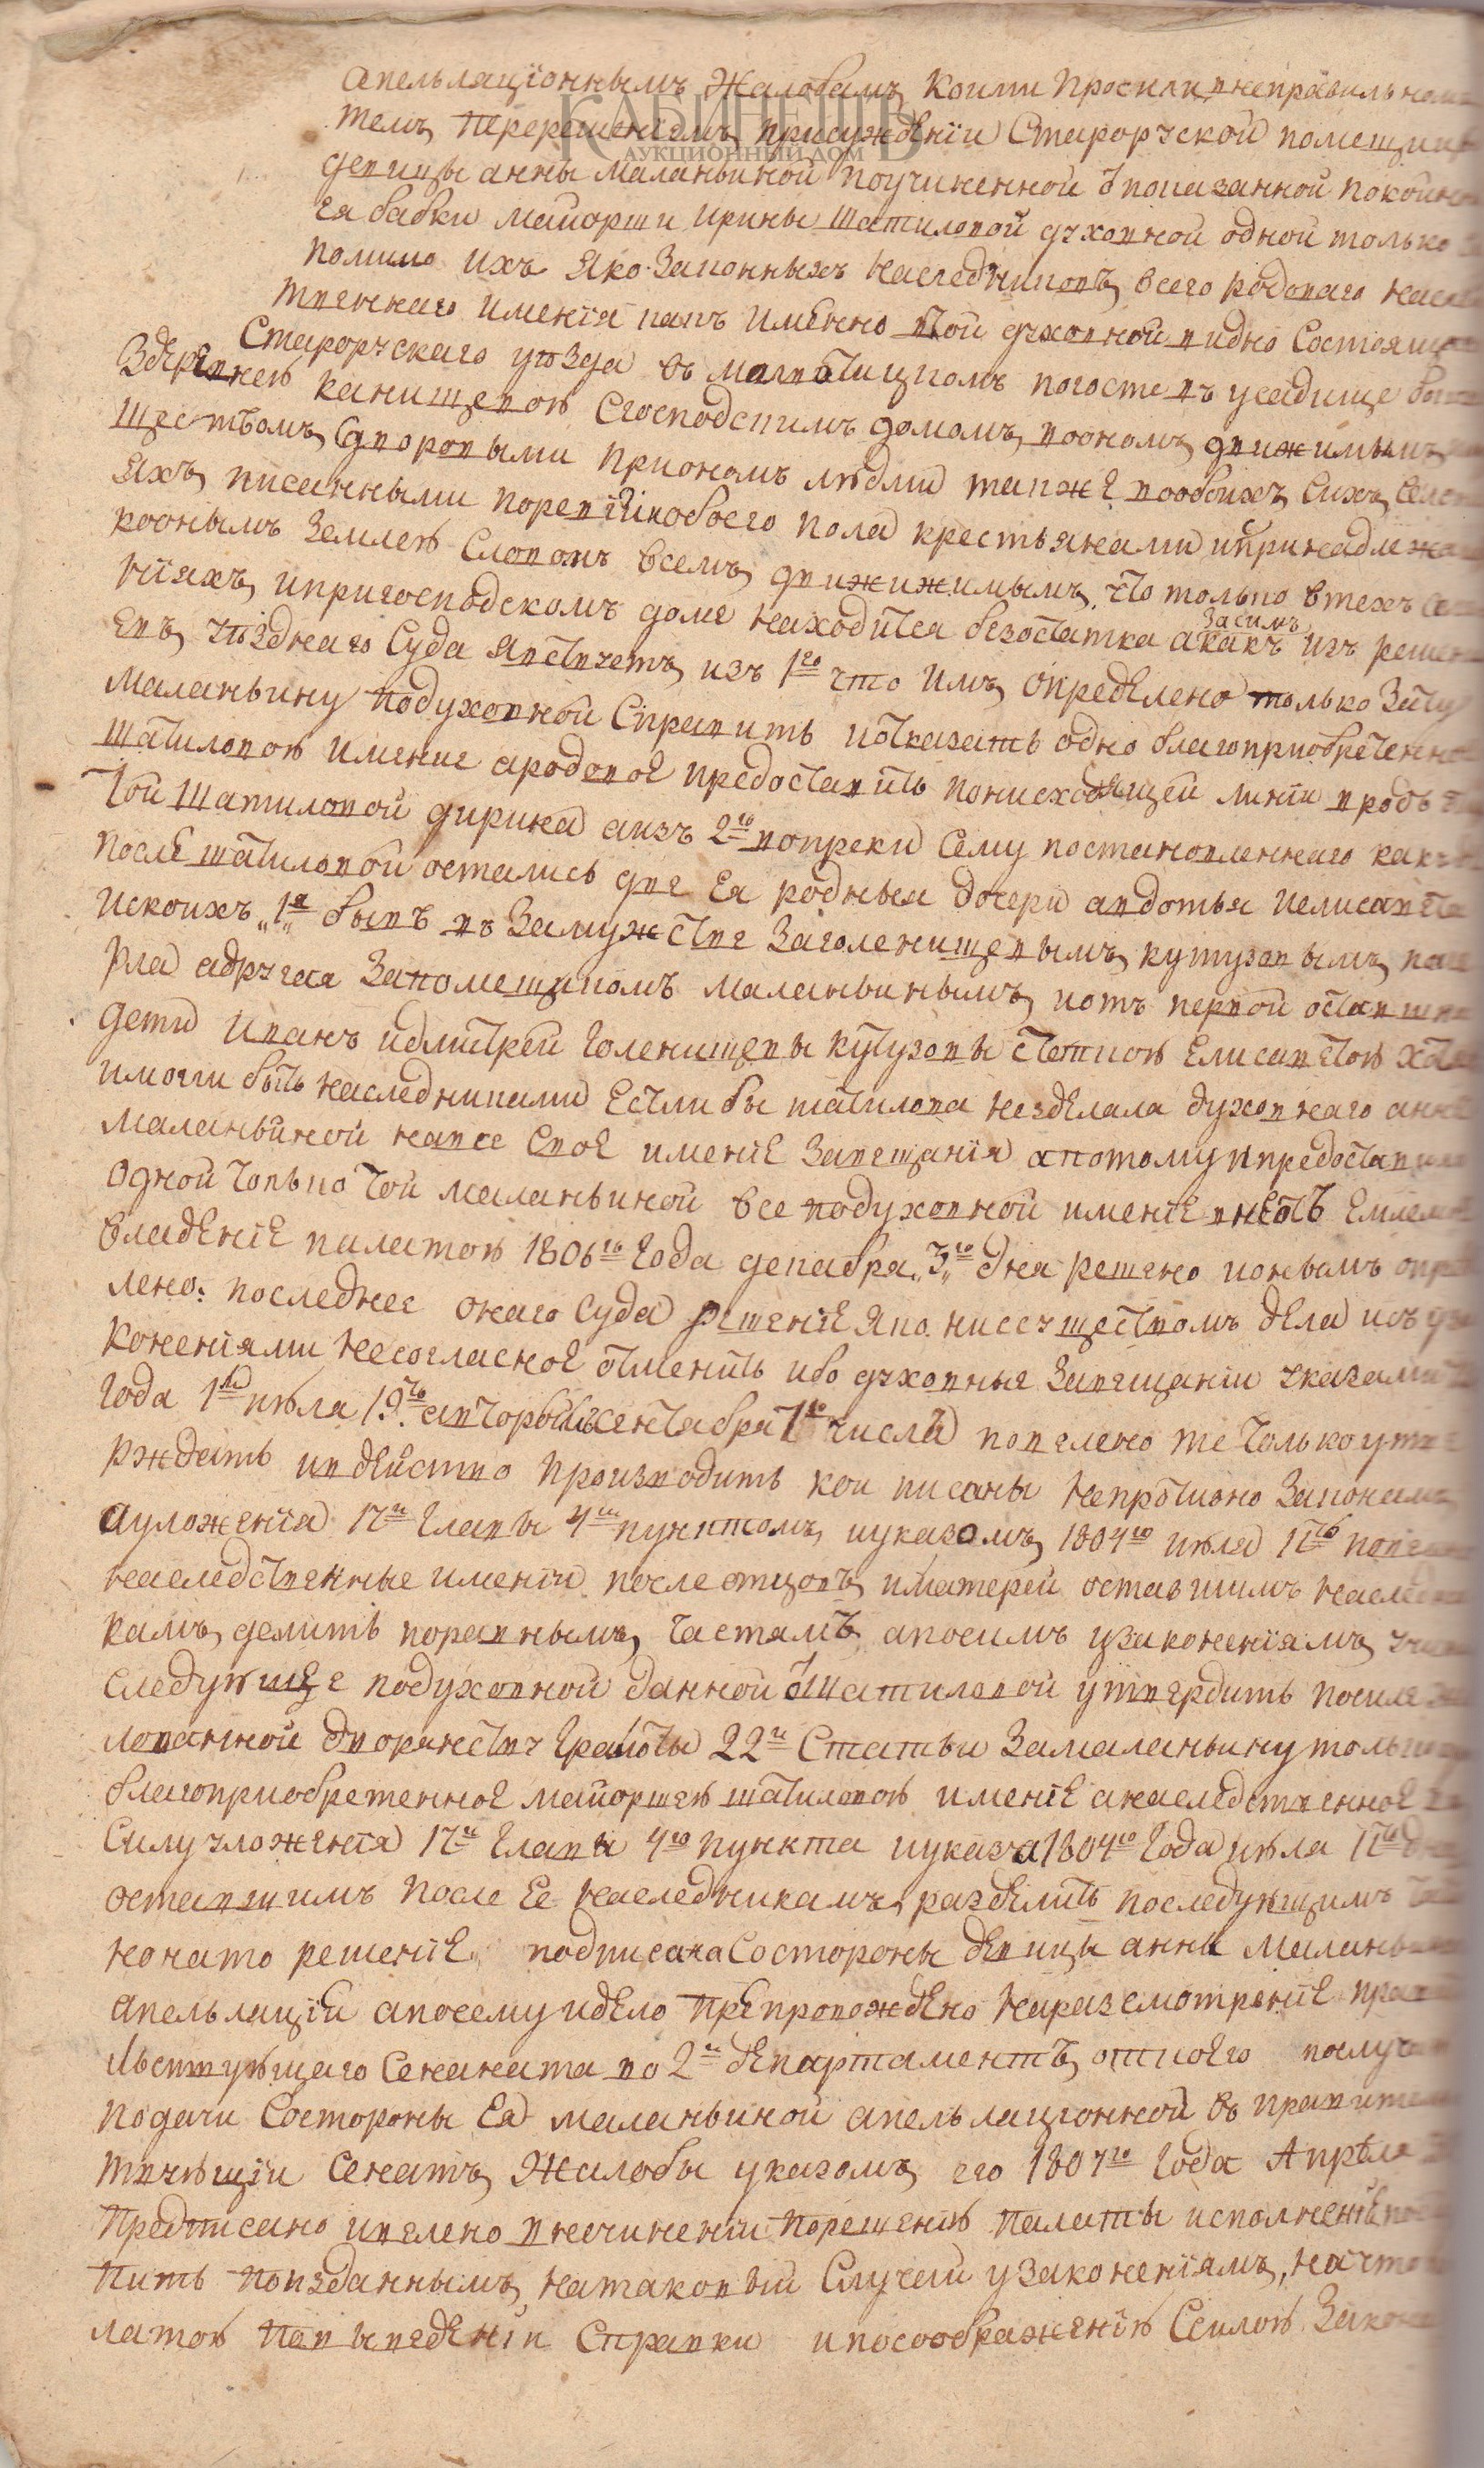 апелляцiонымъ жалобамъ коими просили о неправильномъ
КАБИНЕТЪ
АУКЦИОННЫЙ ДОМ
темъ перерешенiемъ присужденiи Старорусской помещицы
девицы анны маланьиной поучиненной отпоказанной покойной
ея бабки маиорши ирины шатиловой духовной одной только
помимо ихъ яко законныхъ наследниковъ всего родоваго насле
твеннаго именiя какъ именно втой духовной видно Состоящаго
Старорускаго уезда въ погосте въ усадище
Здеревнею канищевою Сгосподскимъ домомъ воономъ движимымъ
ществомъ Сдворовыми приономъ людми также вообоихъ Сихъ Селе
яхъ писанными поревизiи обоего пола крестьянами ипринадлежа
коонымъ землею Словомъ всемъ движижимымъ что только втехъ Се
нiяхъ ипригосподскомъ доме находится безостатка акакъ засимъ изъ реше
евъ уезднаго Суда явствуетъ изъ 1го что имъ определено только Зату
маланьину подуховной Справить иотказать одно благоприобретенное
шатиловою имение ародовое предоставить понисходящей линiи вродъ
той шатиловой дирина аизъ 2го вопреки Сему постановленнаго какъ
после шатиловой остались две Ея родныя дочери авдотья иелисавета
искоихъ „1я„ бывъ въ замужстве заголенищевымъ кутузовымъ
рла адругая запомещикомъ маланьинымъ иотъ первой оставши
дети Иванъ идмитрей голенищевы кутузовы стеткою елисаветою хотя
имогли быть наследниками если бы шатилова незделала духовнаго анне
маланьиной навсе Свое именiе завещанiя апотому ипредоставила
одной только той маланьиной все подуховной именiе
владенiе палатою 1806го года декабря „3„го дня решено ионымъ опре
лено: последнее онаго Суда решенiе яко нессуществомъ дела исъ уза
коненiями несогласное отменить ибо духовные завещанiи указами
года 1й июля 19го авторымъ сентября 1го числа повелено те только утве
рждать ивдейство производить кои писаны непротивно законамъ
ауложенiя 17й главы 4мъ пунктомъ иуказомъ 1804го июля 11го повеле
наследственные именiи после отцовъ иматерей оставшимъ наследни
камъ делить поравнымъ частямъ апосимъ узаконенiямъ
следующее подуховной данной отшатиловой утвердить посиле
лованной дворянству грамоты 22й Статьи замаланьину только
благоприобретенное маиоршею шатиловою именiе анаследственное
Силу уложенiя 17й главы 4го пункта иуказа 1804го года июля 11го дня
оставшимъ после ее наследникамъ разделить последующимъ
ионато решенiе подписана Состороны девицы анны маланьи
апелляцiи апосему идело препровождено наразсмотренiе прави
льствующаго Сенаната во 2й департаментъ откоего
подачи Состороны ея маланьиной апелляцiонной въ правитель
твующiи Сенатъ жалобы указомъ его 1807го года Апреля
предписано ивелено неучиненiи порешенiю палаты исполненiя
пить поизданнымъ натаковый Случай узаконенiямъ, начто
латою повыведенiи Справки ипосоображенiю Ссилою Закон